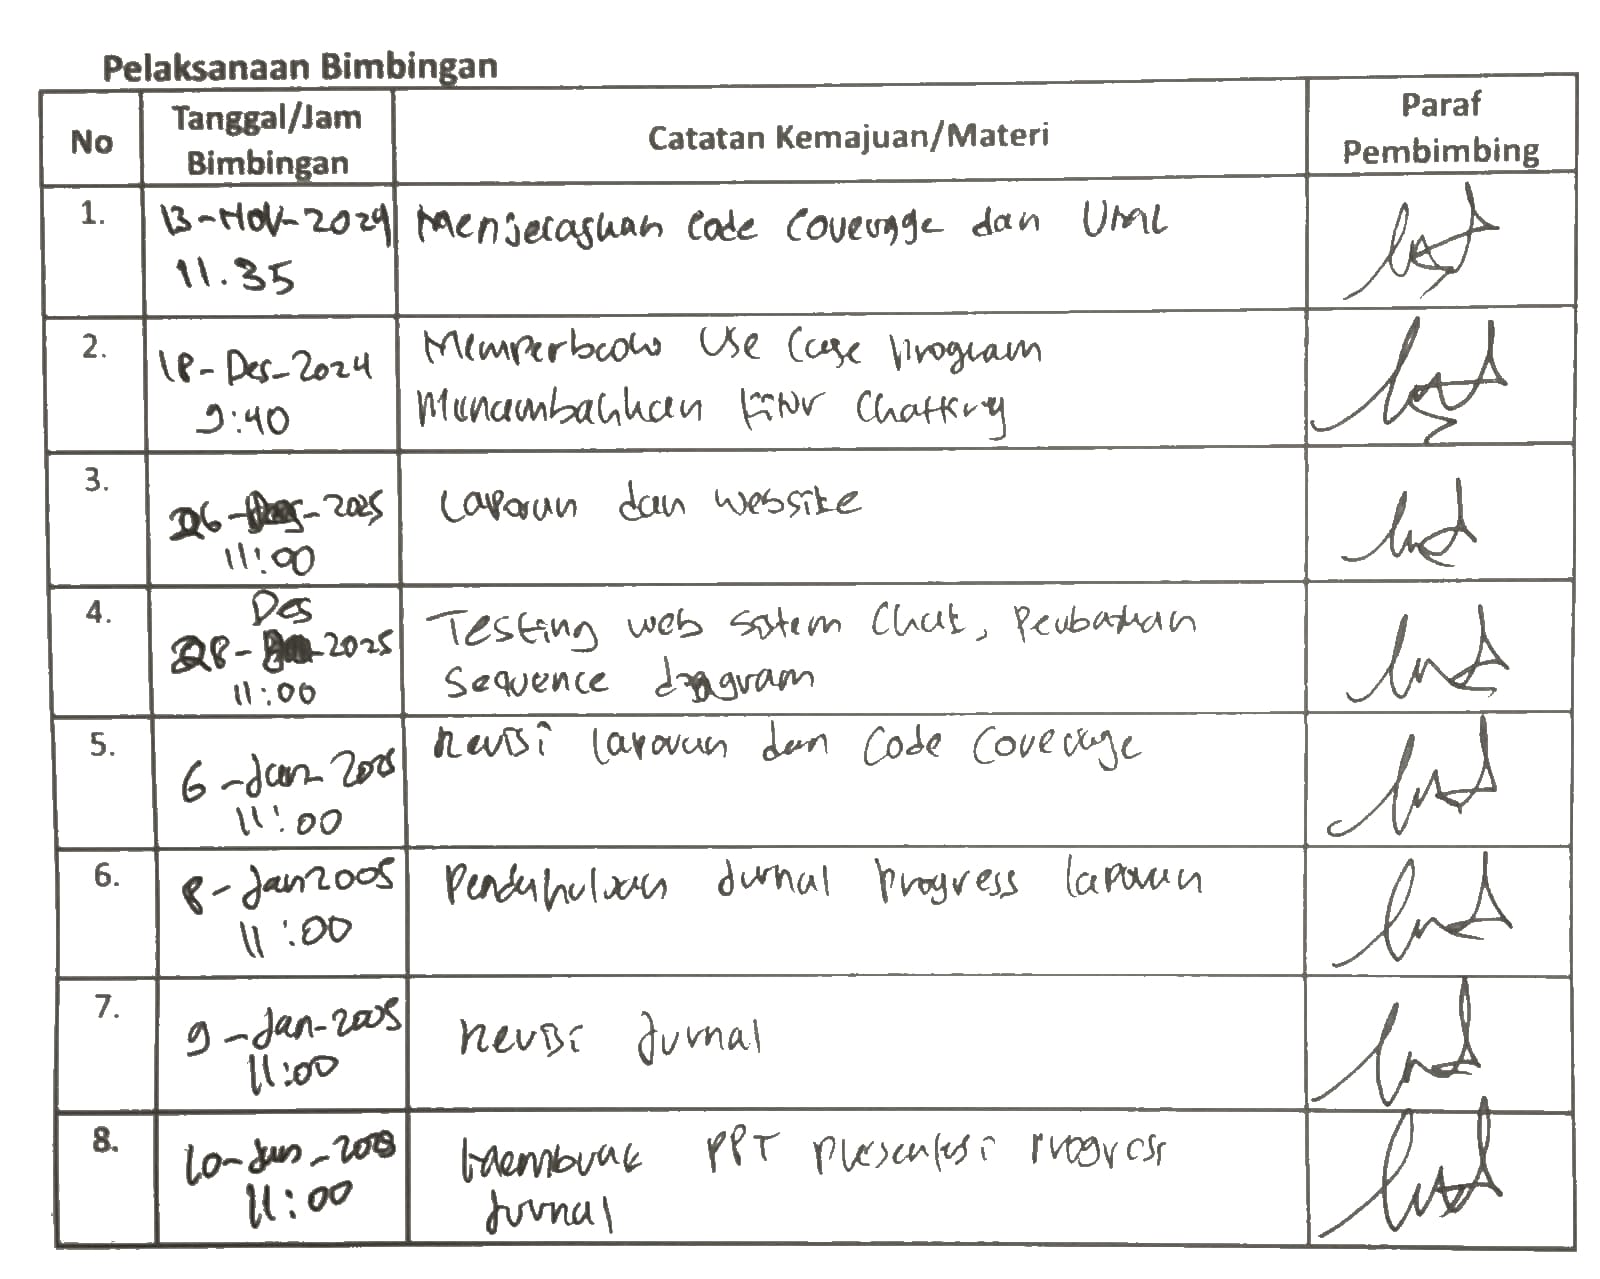 Pelaksanaan Bimbingan
No
Tanggal/Jam
Bimbingan
Catatan Kemajuan/Materi
Paraf
Pembimbing
1.
13-Nov-2024
11.35
Menjelaskan Code Coverage dan UML
2.
18-Des-2024
9:40
Memperbaiki Use Case Program
Menambahkan Fitur Chatting
3.
26- -2025
11:00
Laporan dan website
4.
Des
28- -2025
11:00
Testing web sistem Chat, Perubahan
Sequence diagram
5.
6-Jan-2025
11:00
Revisi laporan dan Code Coverage
6.
8-Jan2005
11:00
Pendahuluan Jurnal Progress laporan
7.
9-Jan-2005
11:00
Revisi Jurnal
8.
10-Jan-
11:00
Membuat PPT presentasi Progress
Jurnal